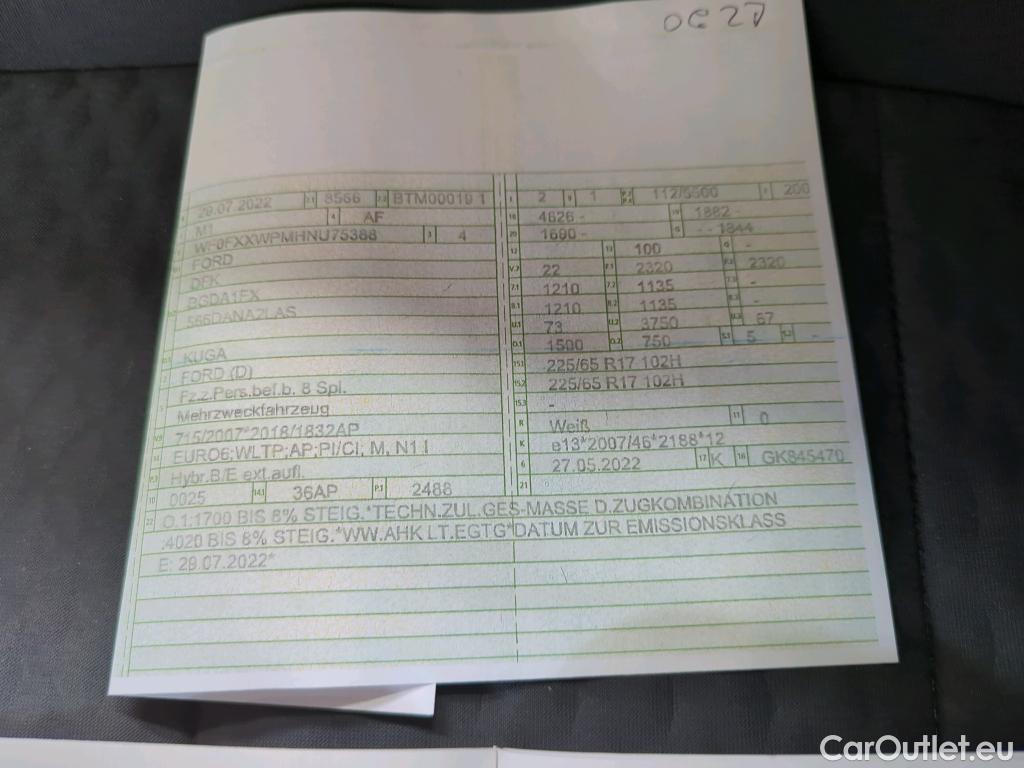 29.07.2022 2.1 8566 2.2 BTM00019 1
M1 4 AF
WF0FXXWPMHNU75388 3 4
FORD
DFK
BGDA1FX
S66DANA2LAS
KUGA
FORD (D)
Fz.z.Pers.bef.b. 8 Spl.
Mehrzweckfahrzeug
715/2007*2018/1832AP
EURO6;WLTP;AP;PI/CI, M, N1 I
Hybr.B/E ext.aufl.
10 0025 14.1 36AP P.1 2488
2 9 1 112/5500 200
18 4626 - 19 1882 -
20 1690 - G - - 1844
12 13 100 Q -
V.7 22 F.1 2320 F.2 2320
7.1 1210 7.2 1135 7.3 -
8.1 1210 8.2 1135 8.3 -
U.1 73 U.2 3750 U.3 67
O.1 1500 O.2 750 S.1 5 S.2 -
15.1 225/65 R17 102H
15.2 225/65 R17 102H
15.3 -
R Weiß 11 0
K e13*2007/46*2188*12
6 27.05.2022 17 K 16 GK845470
21
22 O.1:1700 BIS 8% STEIG.*TECHN.ZUL.GES-MASSE D.ZUGKOMBINATION
:4020 BIS 8% STEIG.*WW.AHK LT.EGTG*DATUM ZUR EMISSIONSKLASS
E: 29.07.2022*
CarOutlet.eu